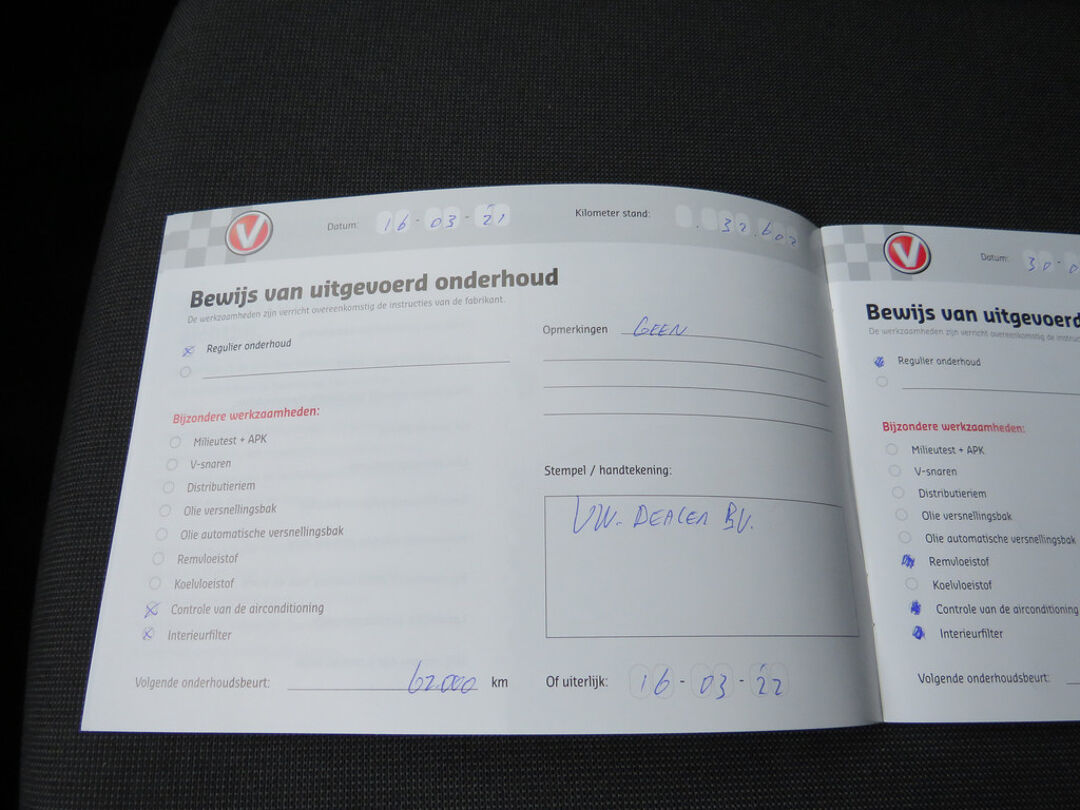 V
Datum: 16-03-'21
Kilometer stand: .32.602
Bewijs van uitgevoerd onderhoud
De werkzaamheden zijn verricht overeenkomstig de instructies van de fabrikant.
Regulier onderhoud
Bijzondere werkzaamheden:
Milieutest + APK
V-snaren
Distributieriem
Olie versnellingsbak
Olie automatische versnellingsbak
Remvloeistof
Koelvloeistof
Controle van de airconditioning
Interieurfilter
Volgende onderhoudsbeurt: 62.000 km
Opmerkingen GEEN
Stempel / handtekening:
VW. DEALER B.V.
Of uiterlijk: 16-03-'22
V
Datum: 30-0
Bewijs van uitgevoerd
De werkzaamheden zijn verricht overeenkomstig de instruc
Regulier onderhoud
Bijzondere werkzaamheden:
Milieutest + APK
V-snaren
Distributieriem
Olie versnellingsbak
Olie automatische versnellingsbak
Remvloeistof
Koelvloeistof
Controle van de airconditioning
Interieurfilter
Volgende onderhoudsbeurt: